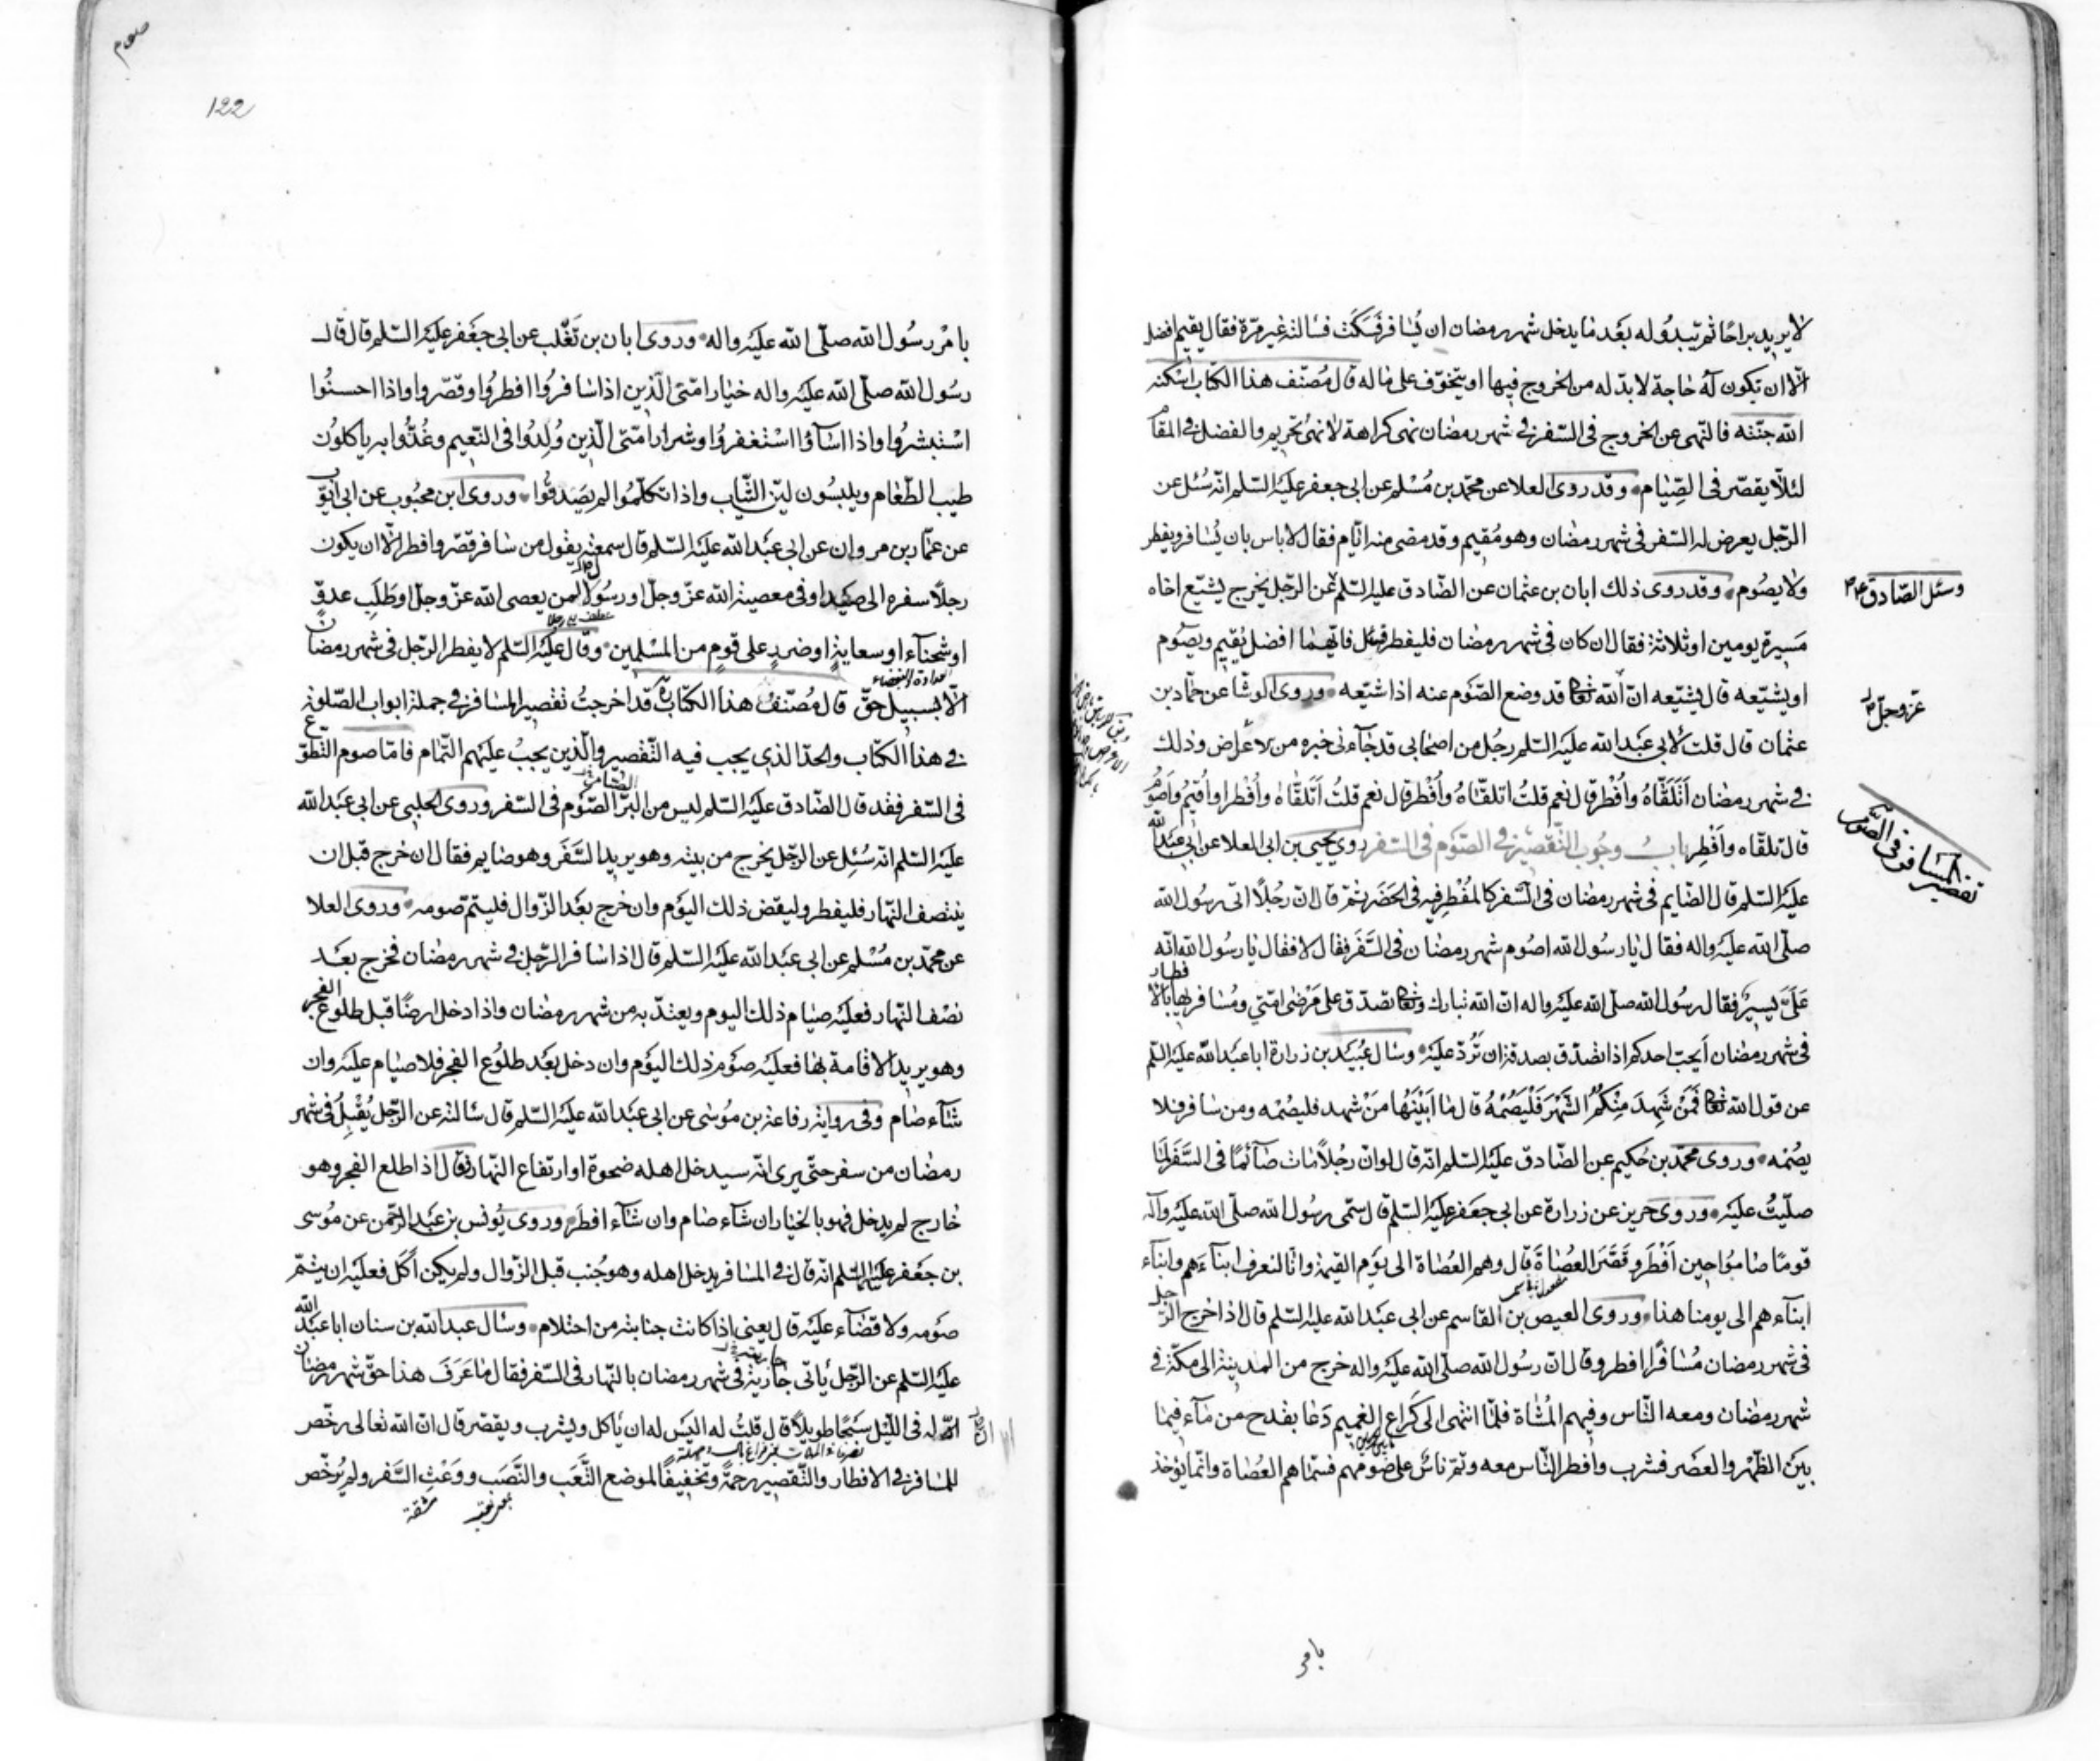 لا يريد براحا ثم يبدو له بعد ما يدخل شهر رمضان ان يسافر فسكت فسالته غير مرة فقال يقيم افضل
الا ان تكون له حاجة لا بد له من الخروج فيها او يتخوف على ماله قال مصنف هذا الكتاب اسكنه
الله جنته فالنهى عن الخروج فى السفر فى شهر رمضان نهى كراهة لا نهى تحريم والفضل فى المقام
لئلا يقصر فى الصيام وقد روى العلا عن محمد بن مسلم عن ابى جعفر عليه السلم انه سئل عن
الرجل يعرض له السفر فى شهر رمضان وهو مقيم وقد مضى منه ايام فقال لا باس بان يسافر ويفطر
ولا يصوم وقد روى ذلك ابان بن عثمان عن الصادق عليه السلم عن الرجل يخرج يشيع اخاه
وسئل الصادق ع
مسيرة يومين او ثلاثة فقال ان كان فى شهر رمضان فليفطر فسئل فايهما افضل يقيم ويصوم
او يشيعه قال يشيعه ان الله تعا قد وضع الصوم عنه اذا شيعه وروى الوشا عن حماد بن
عز وجل
عثمان قال قلت لابى عبد الله عليه السلم رجل من اصحابى قد جاءنى خبره من الاعراض وذلك
فى شهر رمضان أتلقاه وأفطر قال نعم قلت اتلقاه وأفطر قال نعم قلت أتلقاه وأفطر او أقيم وأصوم
قال تلقاه وأفطر باب وجوب التقصير فى الصوم فى السفر روى يحيى بن ابى العلا عن ابى عبد الله
تقصير المسافر فى الصوم
عليه السلم قال الصايم فى شهر رمضان فى السفر كالمفطر فيه فى الحضر ثم قال ان رجلا اتى رسول الله
صلى الله عليه واله فقال يا رسول الله اصوم شهر رمضان فى السفر فقال لا فقال يا رسول الله انه
على يسير فقال رسول الله صلى الله عليه واله ان الله تبارك وتعا تصدق على مرضى امتي ومسافريها بالافطار
فى شهر رمضان أيحب احدكم اذا تصدق بصدقة ان ترد عليه وسال عبيد بن زرارة ابا عبد الله عليه السلم
عن قول الله تعا فمن شهد منكم الشهر فليصمه قال ما ابينها من شهد فليصمه ومن سافر فلا
يصمه وروى محمد بن حكيم عن الصادق عليه السلم انه قال لو ان رجلا مات صآئما فى السفر لما
صليت عليه وروى حريز عن زرارة عن ابى جعفر عليه السلم قال سمى رسول الله صلى الله عليه وآله
قوما صاموا حين أفطر وقصر العصاة قال وهم العصاة الى يوم القيمة وانا لنعرف ابنآءهم وابنآء
ابناءهم الى يومنا هذا وروى العيص بن القاسم عن ابى عبد الله عليه السلم قال اذا خرج الرجل
فى شهر رمضان مسافرا افطر وقال ان رسول الله صلى الله عليه واله خرج من المدينة الى مكة فى
شهر رمضان ومعه الناس وفيهم المشاة فلما انتهى الى كراع الغميم دعا بقدح من مآء فيما
بين الظهر والعصر فشرب وافطر الناس معه وتم ناس على صومهم فسماهم العصاة وانما يؤخذ
بامر
صوم
122
بامر رسول الله صلى الله عليه واله وروى ابان بن تغلب عن ابى جعفر عليه السلم قال قال
رسول الله صلى الله عليه واله خيار امتى الذين اذا سافروا افطروا وقصروا واذا احسنوا
استبشروا واذا اسآؤا استغفروا وشرار امتى الذين ولدوا فى النعيم وغذوا به ياكلون
طيب الطعام ويلبسون لين الثياب واذا تكلموا لم يصدقوا وروى ابن محبوب عن ابى ايوب
عن عمار بن مروان عن ابى عبد الله عليه السلم قال سمعته يقول من سافر قصر وافطر الا ان يكون
رجلا سفره الى صيد او فى معصية الله عز وجل او رسولا لمن يعصى الله عز وجل او طلب عدو
او شحنآء او سعاية او ضرر على قوم من المسلمين وقال عليه السلم لا يفطر الرجل فى شهر رمضان
العداوة والبغضاء
الا بسبيل حق قال مصنف هذا الكتاب ره قد اخرجت تقصير المسافر فى جملة ابواب الصلوة
فى هذا الكتاب والحد الذى يجب فيه التقصير والذين يجب عليهم التمام فاما صوم التطوع
فى السفر فقد قال الصادق عليه السلم ليس من البر الصوم فى السفر وروى الحلبى عن ابى عبد الله
عليه السلم انه سئل عن الرجل يخرج من بيته وهو يريد السفر وهو صايم فقال ان خرج قبل ان
ينتصف النهار فليفطر وليقض ذلك اليوم وان خرج بعد الزوال فليتم صومه وروى العلا
عن محمد بن مسلم عن ابى عبد الله عليه السلم قال اذا سافر الرجل فى شهر رمضان فخرج بعد
نصف النهار فعليه صيام ذلك اليوم ويعتد به من شهر رمضان واذا دخل ارضا قبل طلوع الفجر
وهو يريد الاقامة بها فعليه صوم ذلك اليوم وان دخل بعد طلوع الفجر فلا صيام عليه وان
شآء صام وفى رواية رفاعة بن موسى عن ابى عبد الله عليه السلم قال سالته عن الرجل يقبل فى شهر
رمضان من سفر حتى يرى انه سيدخل اهله ضحوة او ارتفاع النهار فقال اذا طلع الفجر وهو
خارج لم يدخل فهو بالخيار ان شاء صام وان شآء افطر وروى يونس بن عبد الرحمن عن موسى
بن جعفر عليهما السلم انه قال فى المسافر يدخل اهله وهو جنب قبل الزوال ولم يكن أكل فعليه ان يتم
صومه ولا قضآء عليه قال يعنى اذا كانت جنابته من احتلام وسال عبد الله بن سنان ابا عبد الله
عليه السلم عن الرجل ياتى جاريته فى شهر رمضان بالنهار فى السفر فقال ما عرف هذا حق شهر رمضان
ان له فى الليل سبحا طويلا قال قلت له اليس له ان ياكل ويشرب ويقصر قال ان الله تعالى رخص
للمسافر فى الافطار والتقصير رحمة وتخفيفا لموضع التعب والنصب ووعث السفر ولم يرخص
مشقة